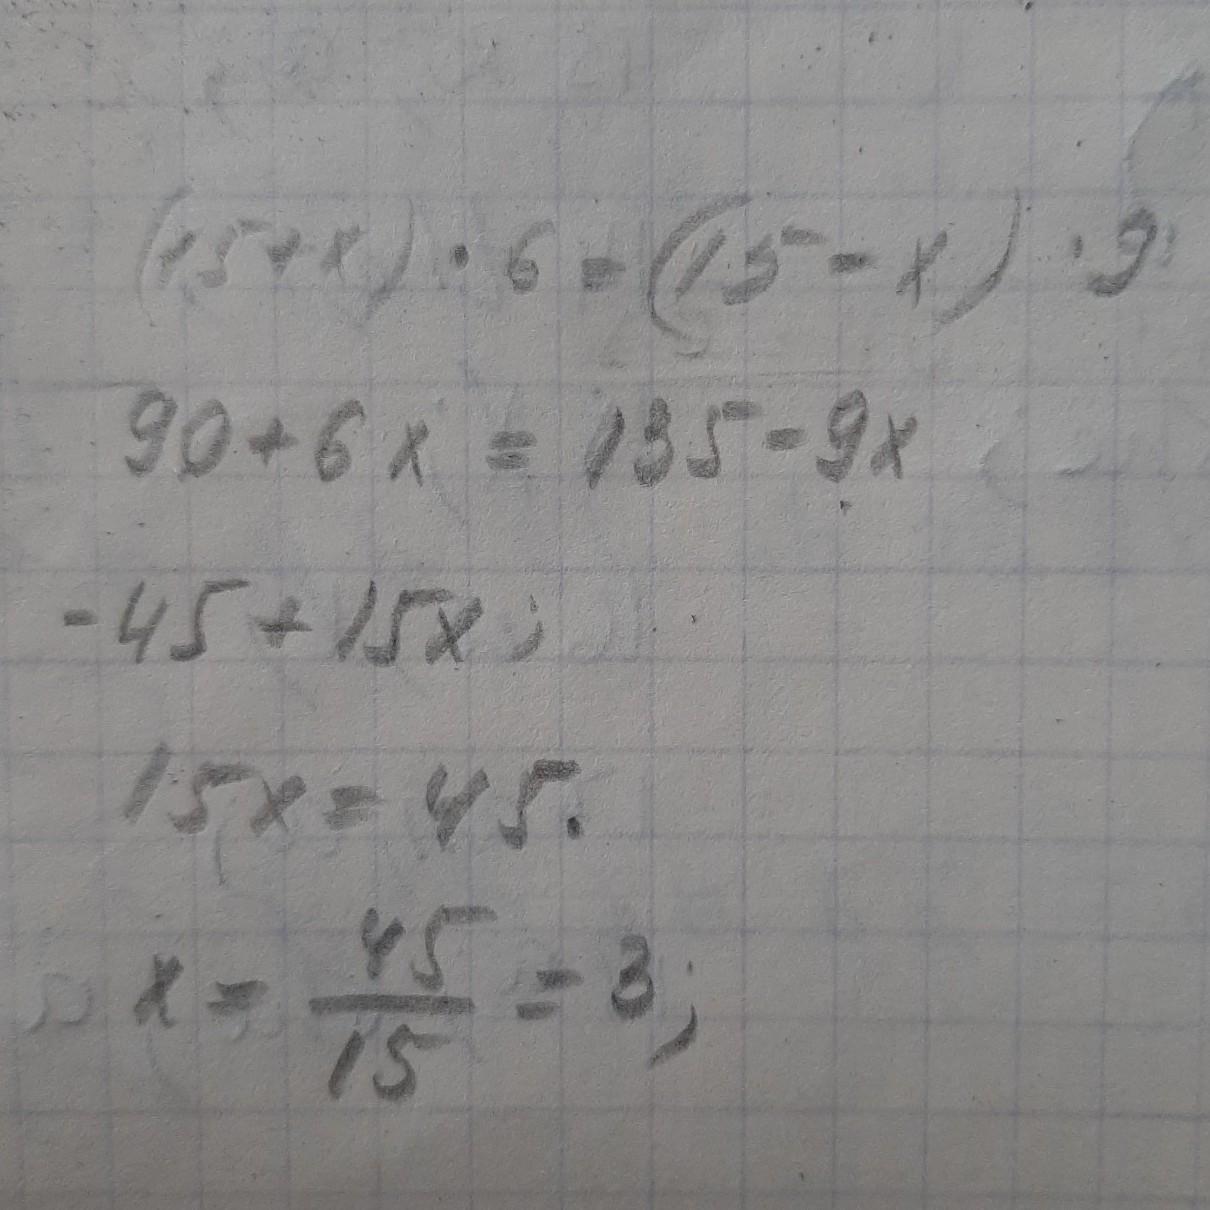 (15+x) · 6 = (15 - x) · 9
90 + 6x = 135 - 9x
-45 + 15x;
15x = 45.
x = 45/15 = 3;